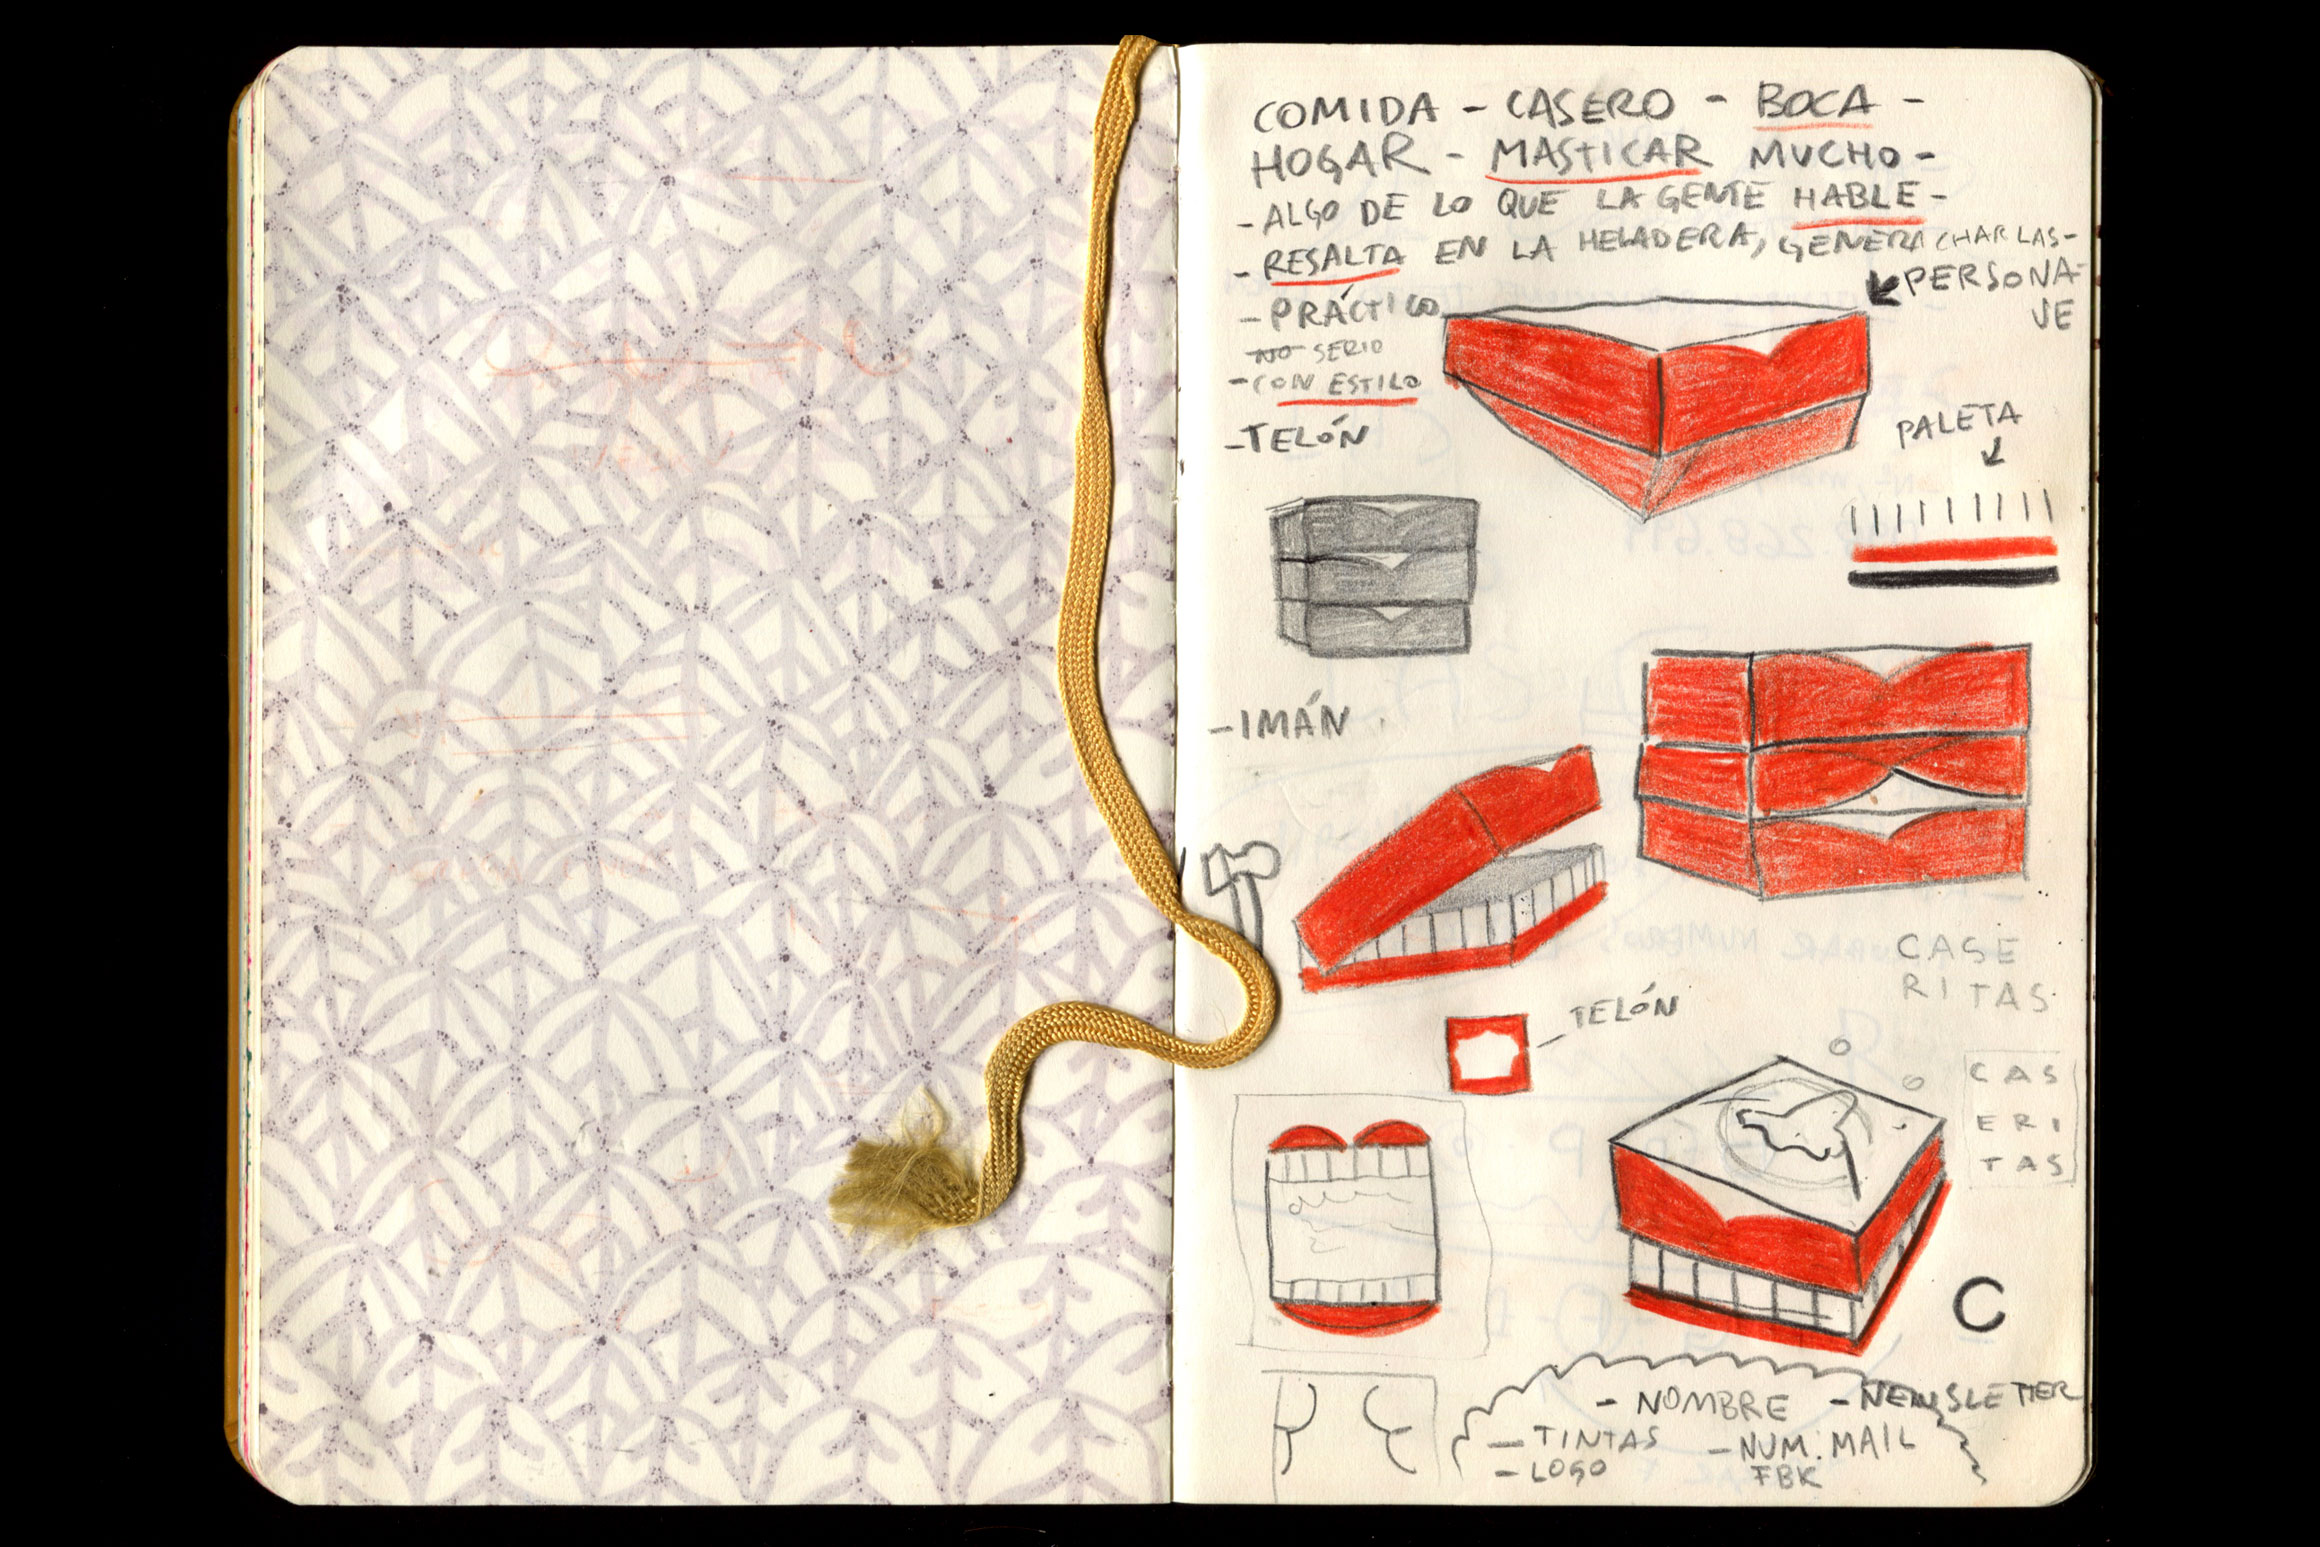 COMIDA - CASERO - BOCA -
HOGAR - MASTICAR MUCHO -
- ALGO DE LO QUE LA GENTE HABLE -
- RESALTA EN LA HELADERA, GENERA CHARLAS -
PERSONA-
JE
- PRÁCTICO
NO SERIO
- CON ESTILO
- TELÓN
PALETA
- IMÁN
CASE
RITAS
TELÓN
CAS
ERI
TAS
C
- NOMBRE - NEWSLETTER
- TINTAS - NUM. MAIL
- LOGO FBK